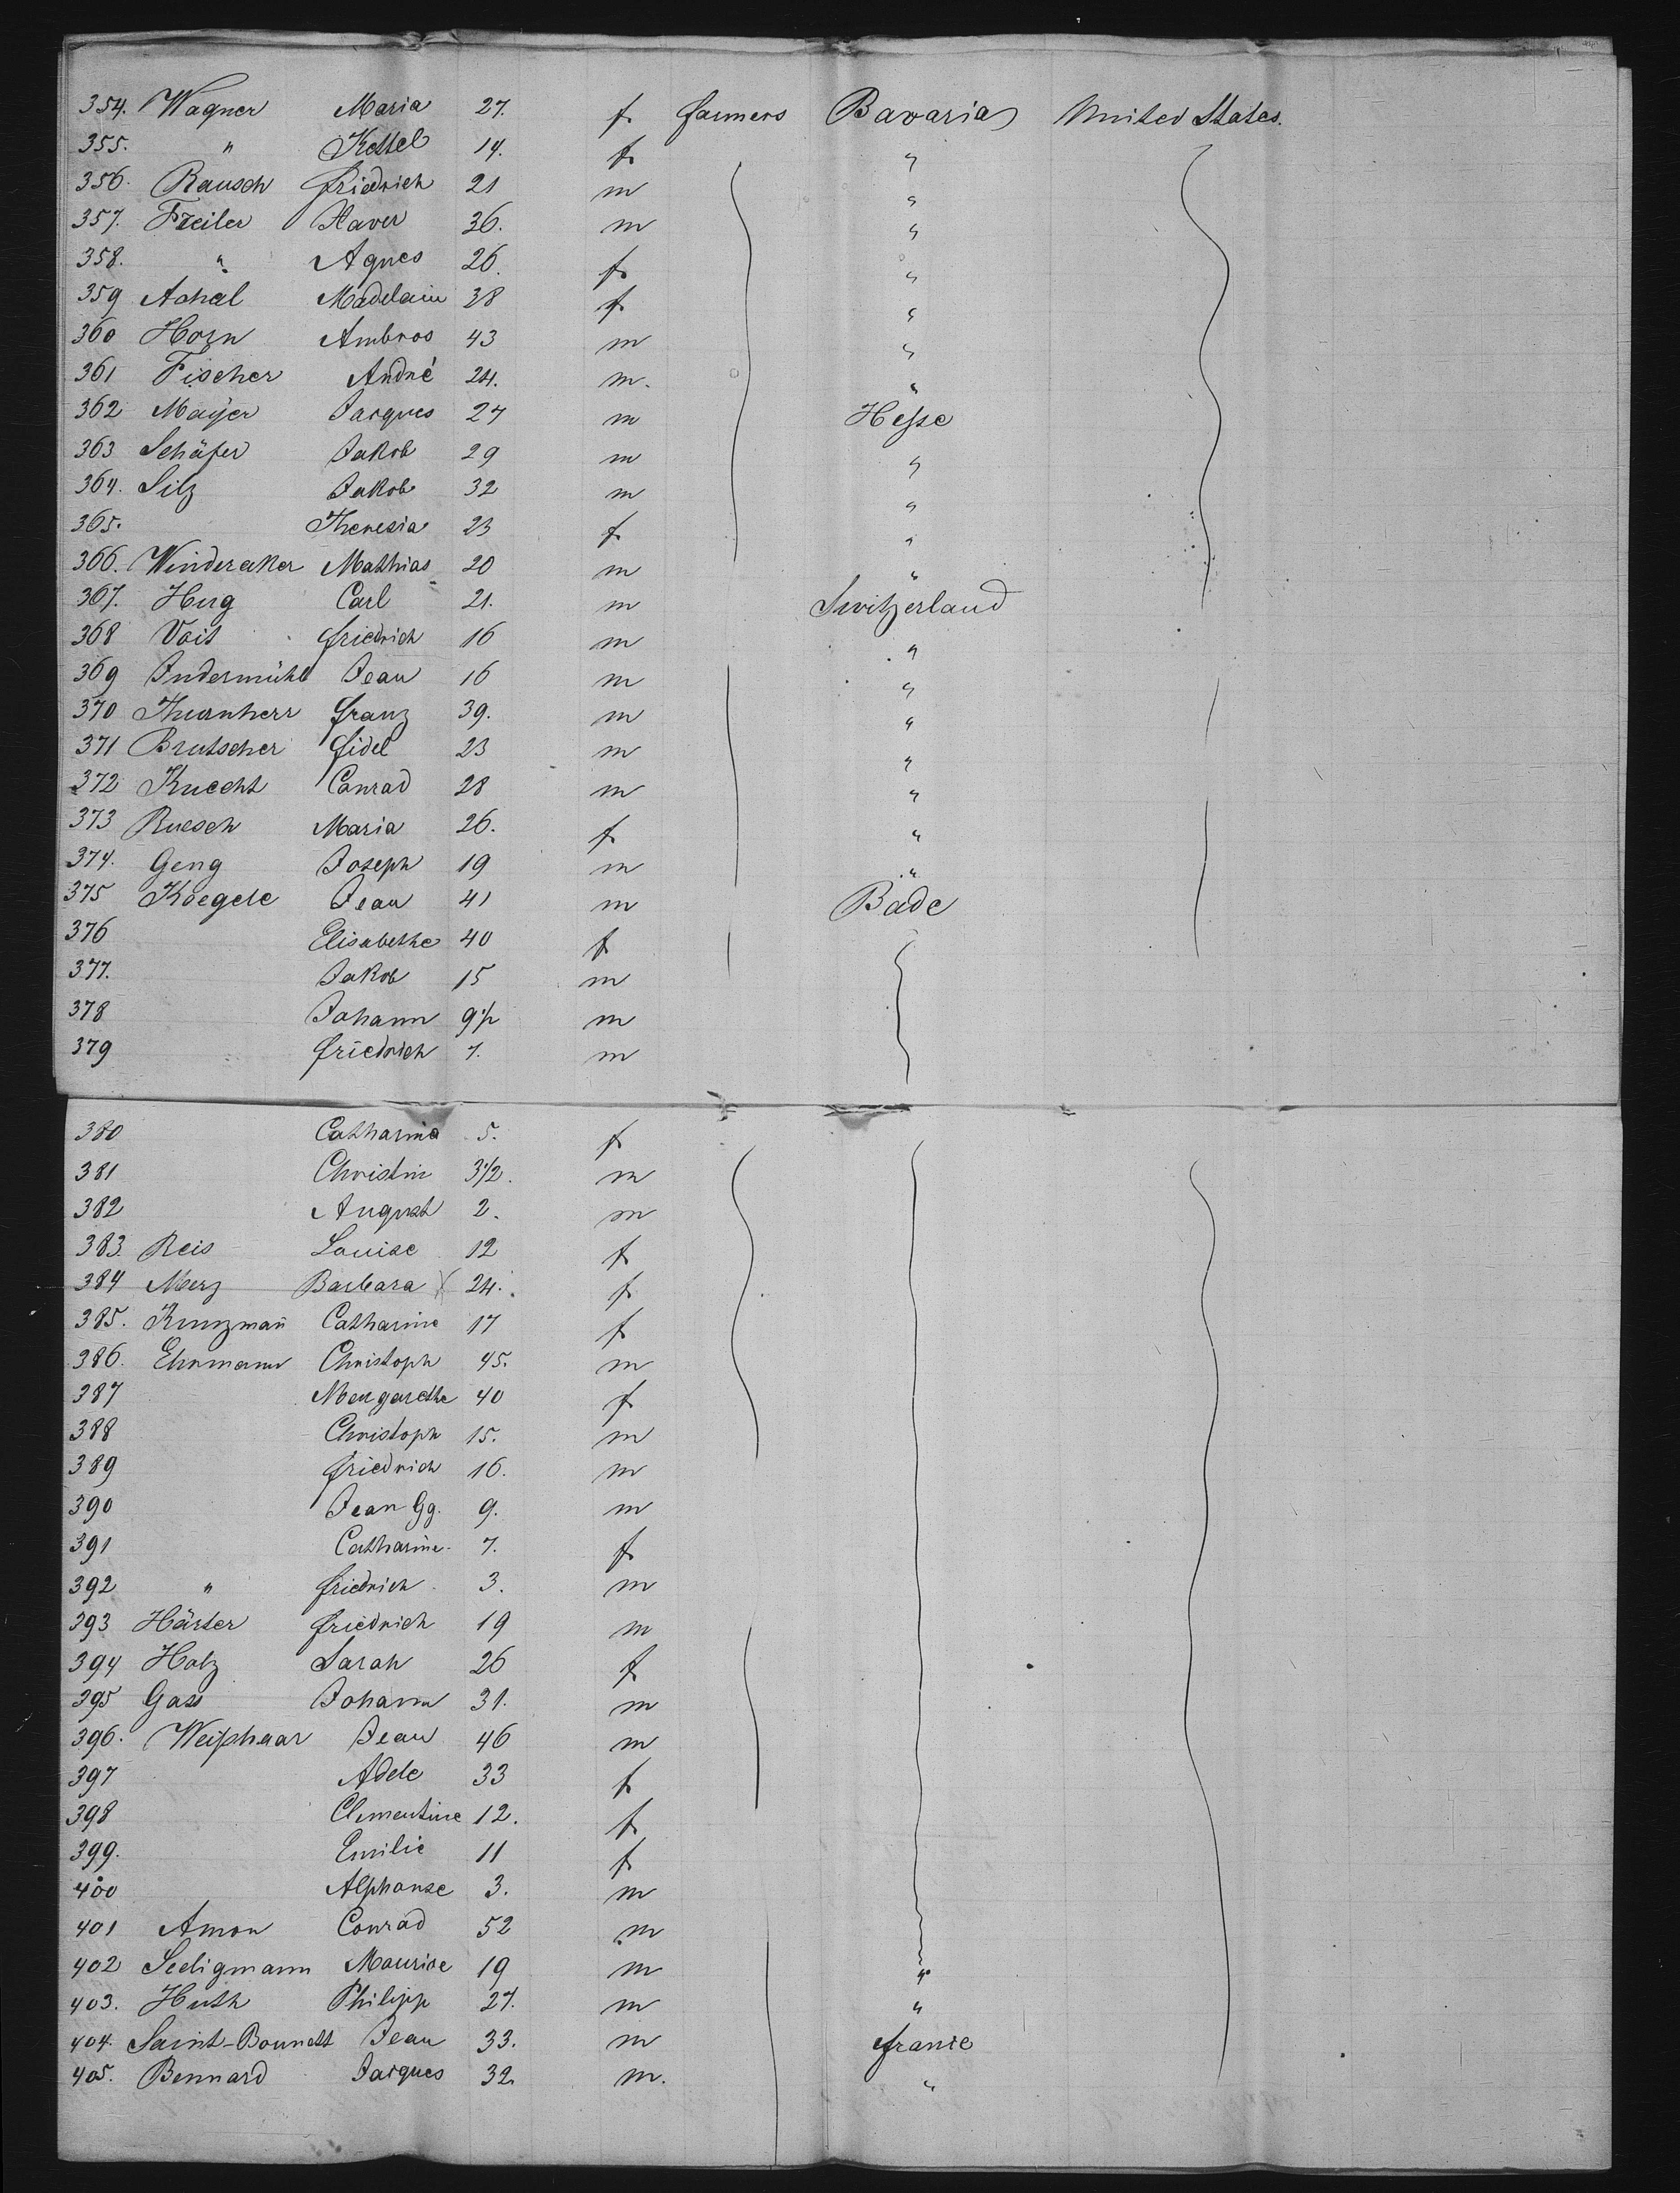 354. Wagner Maria 27. f farmers Bavaria United States.
355. " Kettel 14. f "
356. Rausch friedrich 21 m "
357. Freiler Xaver 36. m "
358. " Agnes 26. f "
359 Achal Madelain 38 f "
360 Horn Ambros 43 m "
361 Fischer André 24. m. "
362 Mayer Jacques 27 m Hesse
363 Schäfer Jakob 29 m "
364. Silz Jakob 32 m "
365. Theresia 23 f "
366. Winderaker Mathias 20 m "
367. Hug Carl 21. m Switzerland
368 Voit friedrich 16 m "
369 Indermühl Jean 16 m "
370 Thurnherr franz 39. m "
371 Brutscher fidel 23 m "
372 Knecht Conrad 28 m "
373 Ruesch Maria 26. f "
374. Geng Joseph 19 m "
375 Koegele Jean 41 m Bade
376 Elisabethe 40 f
377. Jakob 15 m
378 Johann 9 1/2 m
379 friedrich 7. m
380 Catharina 5. f
381 Christin 3 1/2. m
382 August 2. m
383. Reis Louise 12 f
384 Merz Barbara X 24. f
385. Kunzmañ Catharine 17 f
386. Ehrmann Christoph 45. m
387 Margarethe 40 f
388 Christoph 15. m
389 friedrich 16. m
390 Jean Gg. 9. m
391 Catharine 7. f
392 " friedrich 3. m
393 Härter friedrich 19 m
394 Holz Sarah 26 f
395 Gass Johann 31. m
396. Weißhaar Jean 46 m
397 Adele 33 f
398 Clementine 12. f
399. Emilie 11 f
400 Alphonse 3. m
401 Amon Conrad 52 m
402 Seeligmann Maurice 19 m "
403. Huth Philipp 27. m "
404. Saint-Bonnett Jean 33. m france
405. Bernard Jacques 32. m. "